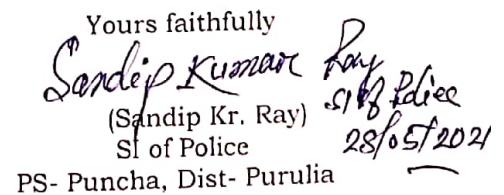 Yours faithfully
Sandip Kumar Ray
SI of Police
(Sandip Kr. Ray)
SI of Police
28/05/2021
PS- Puncha, Dist- Purulia